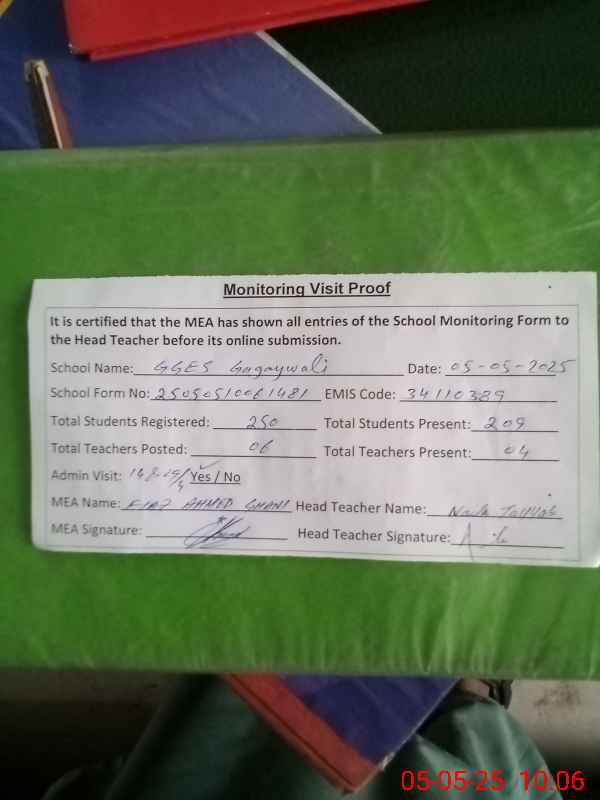 Monitoring Visit Proof
It is certified that the MEA has shown all entries of the School Monitoring Form to
the Head Teacher before its online submission.
School Name: GGES Gagaywali Date: 05-05-2025
School Form No: EMIS Code: 34110389
Total Students Registered: 250 Total Students Present: 209
Total Teachers Posted: 06 Total Teachers Present: 04
Admin Visit: Yes / No
MEA Name: FIAZ AHMED GHANI Head Teacher Name:
MEA Signature: Head Teacher Signature:
05-05-25 10:06